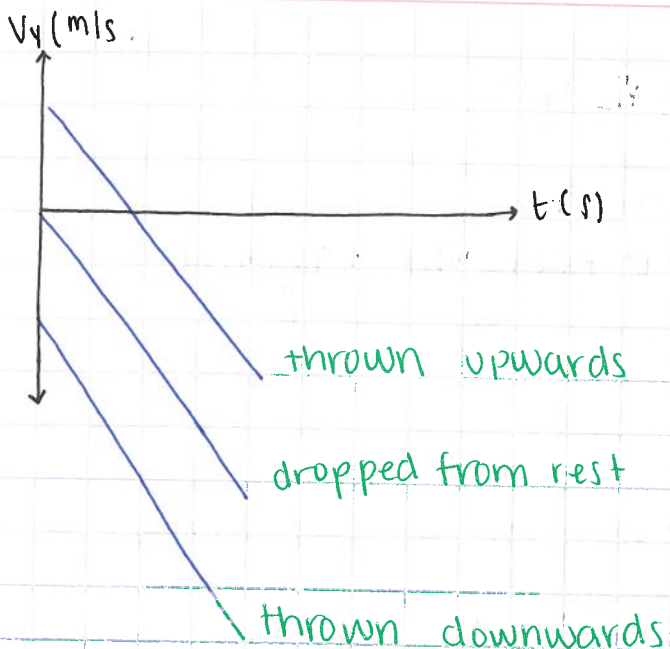 Vy (m/s.
t (s)
thrown upwards
dropped from rest
thrown downwards